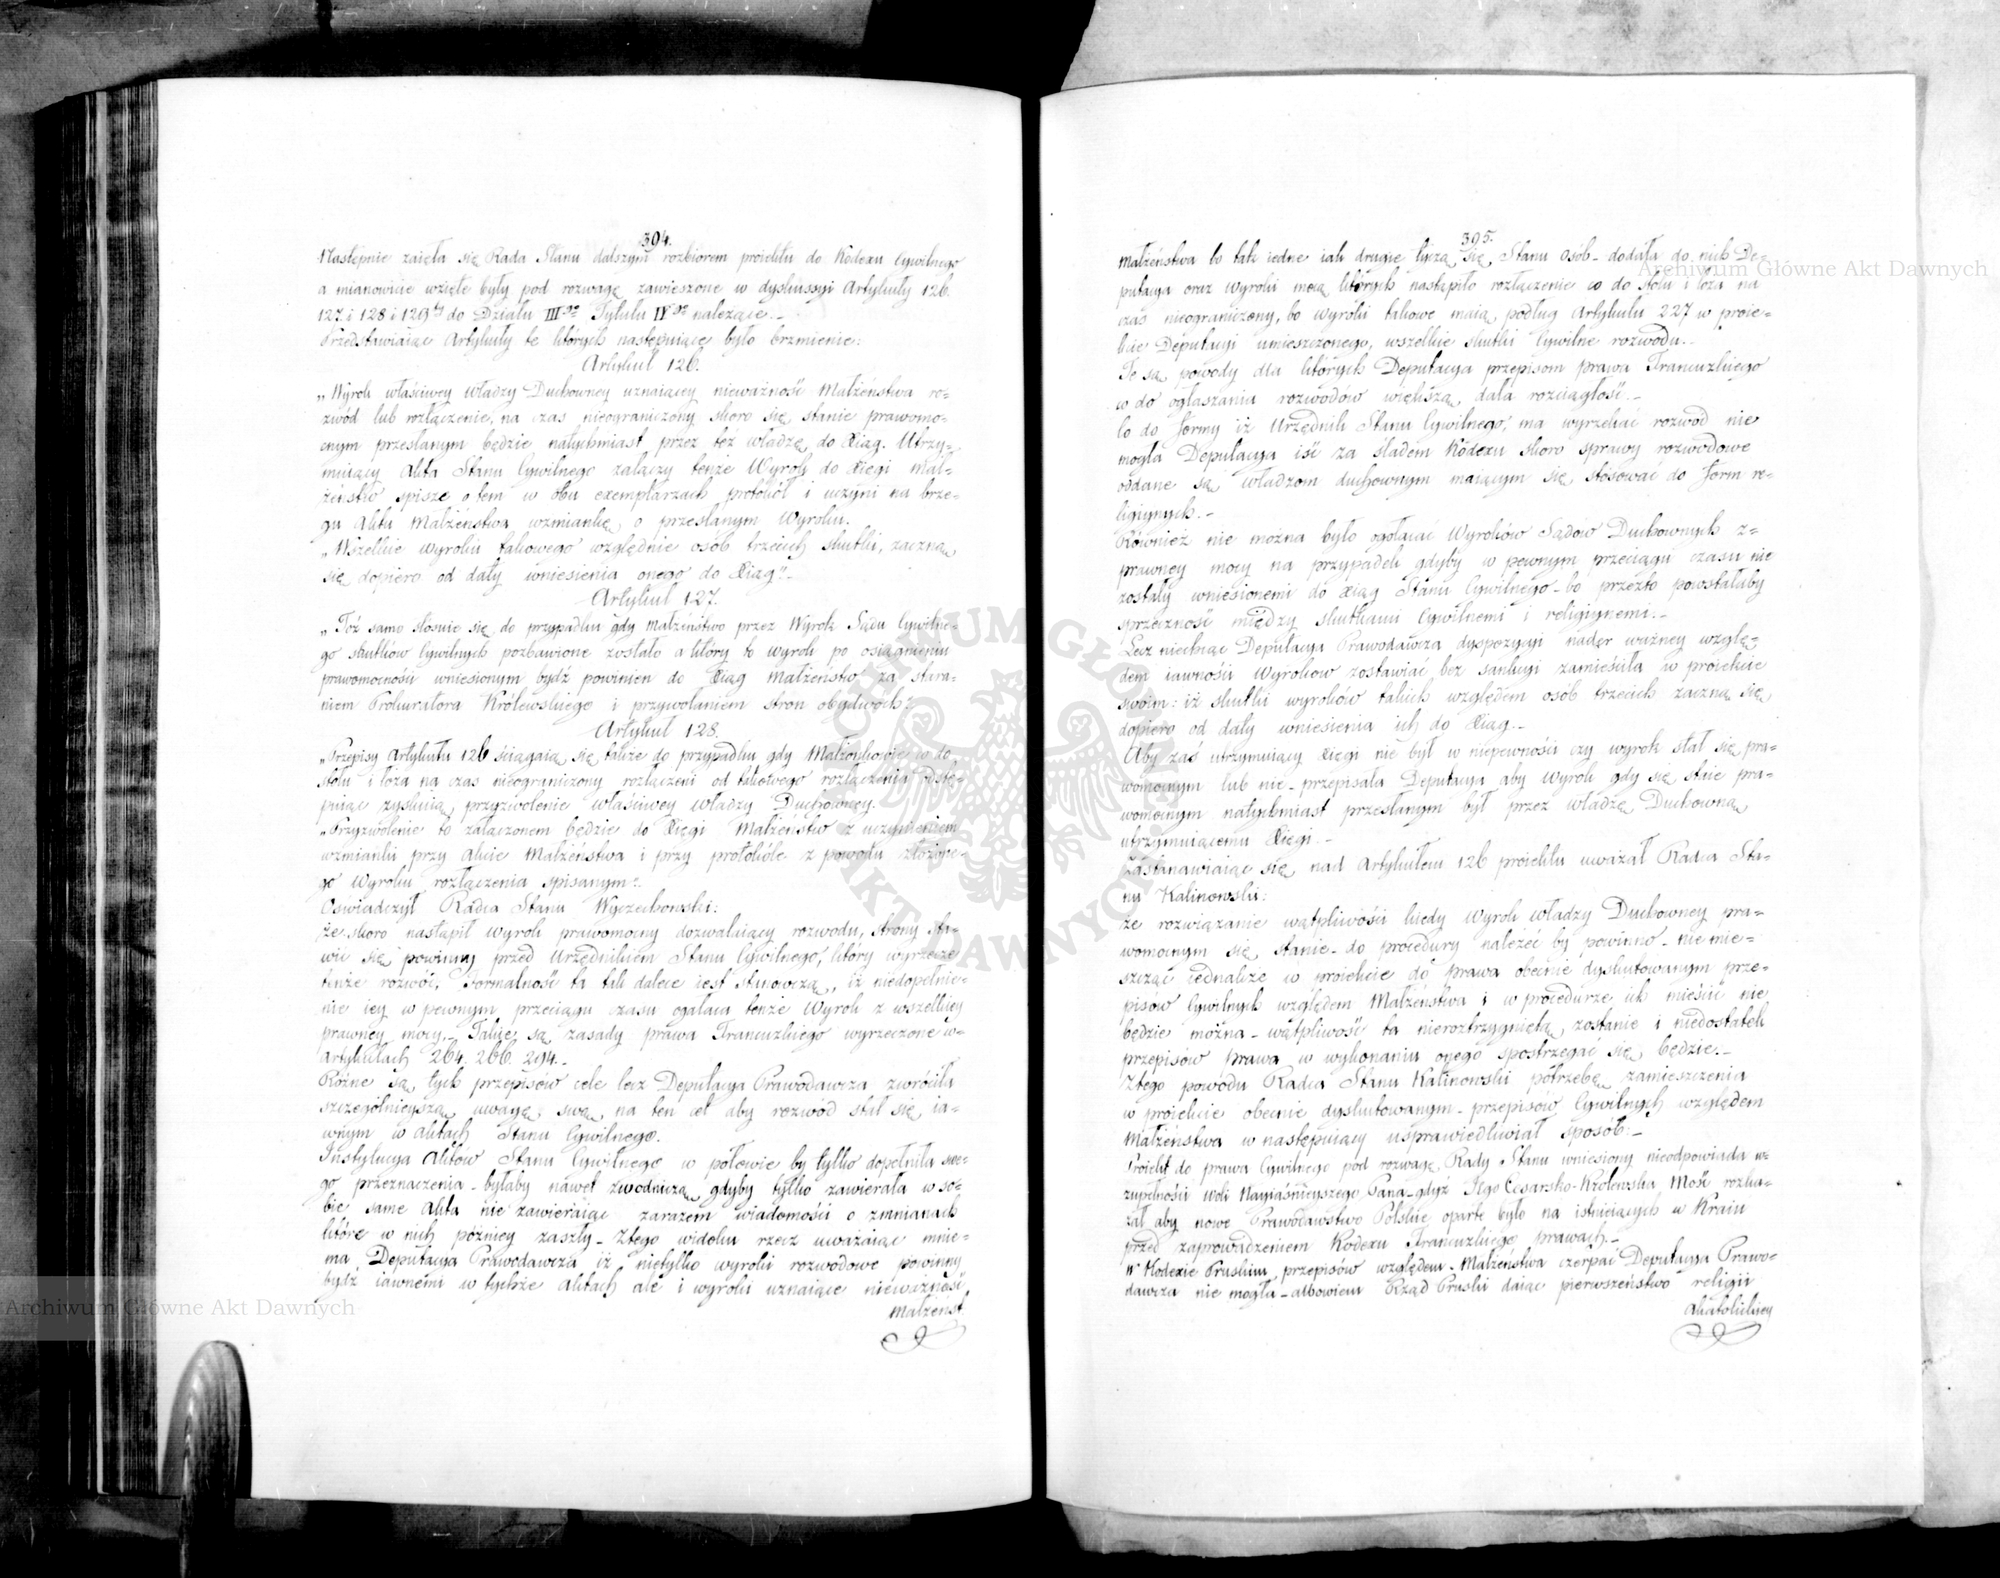 394.
Następnie zaięła się Rada Stanu dalszym rozbiorem proiektu do Kodexu Cywilnego
a mianowicie wzięte były pod rozwagę zawieszone w dyskussyi Artykuły 126.
127. i 128 i 129ty do Działu IIIgo Tytułu IVgo należące._
Przedstawiaiąc Artykuły te których następuiące było brzmienie:
Artykuł 126.
„Wyrok właściwey Władzy Duchowney uznaiący nieważność Małżeństwa ro=
zwód lub rozłączenie, na czas nieograniczony skoro się stanie prawomo=
cnym przesłanym będzie natychmiast przez też władzę do Xiąg. Utrzy=
muiący Akta Stanu Cywilnego załączy tenże Wyrok do Xięgi Mał=
żeństw spisze o tem w obu exemplarzach protokół i uczyni na brze=
gu Aktu Małżeństwa wzmiankę o przesłanym Wyroku.
„Wszelkie wyroku takowego względnie osób trzecich skutki, zaczną
się dopiero od daty wniesienia onego do Xiąg"._
Artykuł 127.
„Toż samo stosuie się do przypadku gdy Małżeństwo przez Wyrok Sądu Cywilne=
go skutków Cywilnych pozbawione zostało a który to wyrok po osiągnieniu
prawomocności wniesionym bydź powinien do Xiąg Małżeństw za stara=
niem Prokuratora Królewskiego i przywołaniem stron obydwóch".
Artykuł 128.
„Przepisy Artykułu 126 ściągaią się także do przypadku gdy Małżonkowie co do
stołu i łoża na czas nieograniczony rozłączeni od takowego rozłączenia odstę=
puiąc zyskuią przyzwolenie właściwey władzy Duchowney.
„Przyzwolenie to załączonem będzie do Xięgi Małżeństw z uczynieniem
wzmianki przy Akcie Małżeństwa i przy protokóle z powodu złożone=
go Wyroku rozłączenia spisanym".
Oświadczył Radca Stanu Wyczechowski:
że skoro nastąpił wyrok prawomocny dozwalaiący rozwodu, strony sta=
wić się powinny przed Urzędnikiem Stanu Cywilnego, który wyrzecze
tenże rozwód, Formalność ta tak dalece iest stanowczą, iż niedopełnie=
nie iey w pewnym przeciągu czasu ogałaca tenże Wyrok z wszelkiey
prawney mocy._ Takie są zasady prawa Francuzkiego wyrzeczone w=
Artykułach 264. 266. 294._
Różne są tych przepisów cele lecz Deputacya Prawodawcza zwróciła
szczególnieyszą uwagę swą na ten cel aby rozwód stał się ia=
wnym w aktach Stanu Cywilnego.
Instytucya Aktów Stanu Cywilnego w połowie by tylko dopełniła swe=
go przeznaczenia_ byłaby nawet zwodniczą gdyby tylko zawierała w so=
bie same Akta nie zawieraiąc zarazem wiadomości o zmianach
które w nich późniey zaszły_ Ztego widoku rzecz uważaiąc mnie=
ma Deputacya Prawodawcza iż nietylko wyroki rozwodowe powinny
bydź iawnemi w tychże aktach ale i wyroki uznaiące nieważność
Małżeńst.
395.
Małżeństwa bo tak iedne iak drugie tyczą się Stanu osób_ dodała do nich De=
putacya oraz wyroki mocą których nastąpiło rozłączenie co do stołu i łoża na
czas nieograniczony, bo wyroki takowe maią podług Artykułu 227 w proie=
kcie Deputacyi umieszczonego, wszelkie skutki Cywilne rozwodu._
Te są powody dla których Deputacya przepisom prawa Francuzkiego
co do ogłaszania rozwodów większą dała rozciągłość._
Co do formy iż Urzędnik Stanu Cywilnego, ma wyrzekać rozwód nie
mogła Deputacya iść za śladem Kodexu skoro sprawy rozwodowe
oddane są Władzom duchownym maiącym się stosować do form re=
ligiynych._
Również nie można było ogołacać Wyroków Sądów Duchownych z=
prawney mocy na przypadek gdyby w pewnym przeciągu czasu nie
zostały wniesionemi do Xiąg Stanu Cywilnego_ bo przezto powstałaby
sprzeczność między skutkami Cywilnemi i religiynemi._
Lecz niechcąc Deputacya Prawodawcza dyspozycyi nader ważney wzglę=
dem iawności Wyroków zostawiać bez sankcyi zamieściła w proiekcie
swoim: iż skutki wyroków takich względem osób trzecich zaczną się
dopiero od daty wniesienia ich do Xiąg._
Aby zaś utrzymuiący Xięgi nie był w niepewności czy wyrok stał się pra=
womocnym lub nie_ przepisała Deputacya aby Wyrok gdy się stnie pra=
womocnym natychmiast przesłanym był przez władzę Duchowną
utrzymuiącemu Xięgi._
Zastanawiaiąc się nad Artykułem 126 proiektu uważał Radca Sta=
nu Kalinowski:
że rozwiązanie wątpliwości kiedy Wyrok władzy Duchowney pra=
womocnym się stanie_ do procedury należeć by powinno_ niemie=
szcząc iednakże w proiekcie do prawa obecnie dyskutowanym prze=
pisów Cywilnych względem Małżeństwa i w procedurze ich mieścić nie
będzie można_ wątpliwość ta nieroztrzygniętą zostanie i niedostatek
przepisów prawa w wykonaniu onego spostrzegać się będzie._
Ztego powodu Radca Stanu Kalinowski potrzebę zamieszczenia
w proiekcie obecnie dyskutowanym_ przepisów Cywilnych względem
Małżeństwa w następuiący usprawiedliwiał sposób:_
Proiekt do prawa Cywilnego pod rozwagę Rady Stanu wniesiony nieodpowiada w=
zupełności woli Nayiaśnieyszego Pana_ gdyż Jego Cesarsko-Królewska Mość rozka=
zał aby nowe Prawodawstwo Polskie oparte było na istnieiących w Kraiu
przed zaprowadzeniem Kodexu Francuzkiego prawach._
W Kodexie Pruskim przepisów względem Małżeństwa czerpać Deputacya Prawo=
dawcza nie mogła_ albowiem Rząd Pruski daiąc pierwszeństwo religii
akatolickiey
Archiwum Główne Akt Dawnych
Archiwum Główne Akt Dawnych
ARCHIWUM GŁÓWNE AKT DAWNYCH